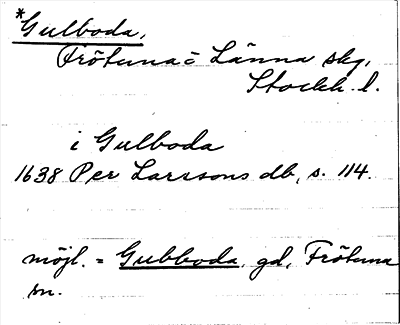 *Gulboda,
Frötuna o Länna skg,
Stockh. l.
i Gulboda
1638 Per Larssons db, s. 114.
möjl. = Gubboda, gd, Frötuna
sn.